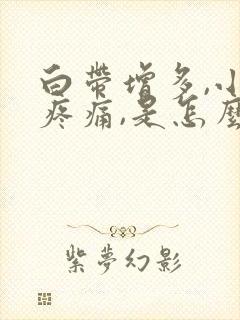 白帶增多,小
疼痛,是怎麼
紫夢幻影